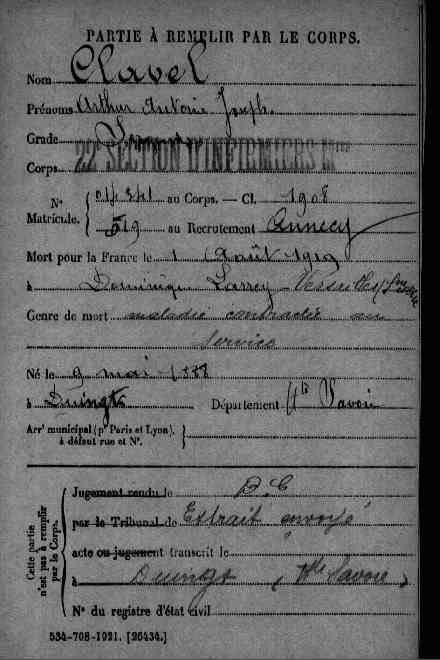 PARTIE À REMPLIR PAR LE CORPS.
Nom Clavel
Prénoms Arthur Antoine Joseph.
Grade
Corps 22e SECTION D'INFIRMIERS Mres
N° Matricule. { 04341 au Corps. — Cl. 1908
519 au Recrutement Annecy
Mort pour la France le 1 Août 1919
à Dominique Larrey - Versailles
Genre de mort maladie contractée en
service
Né le 9 mai 1888
à Duingt Département Hte Savoie
Arrt municipal (pr Paris et Lyon), à défaut rue et N°. {
Cette partie n'est pas à remplir par le Corps.
Jugement rendu le D.C
par le Tribunal de Extrait envoyé
acte ou jugement transcrit le
à Duingt (Hte Savoie)
N° du registre d'état civil
534-708-1921. [26434.]